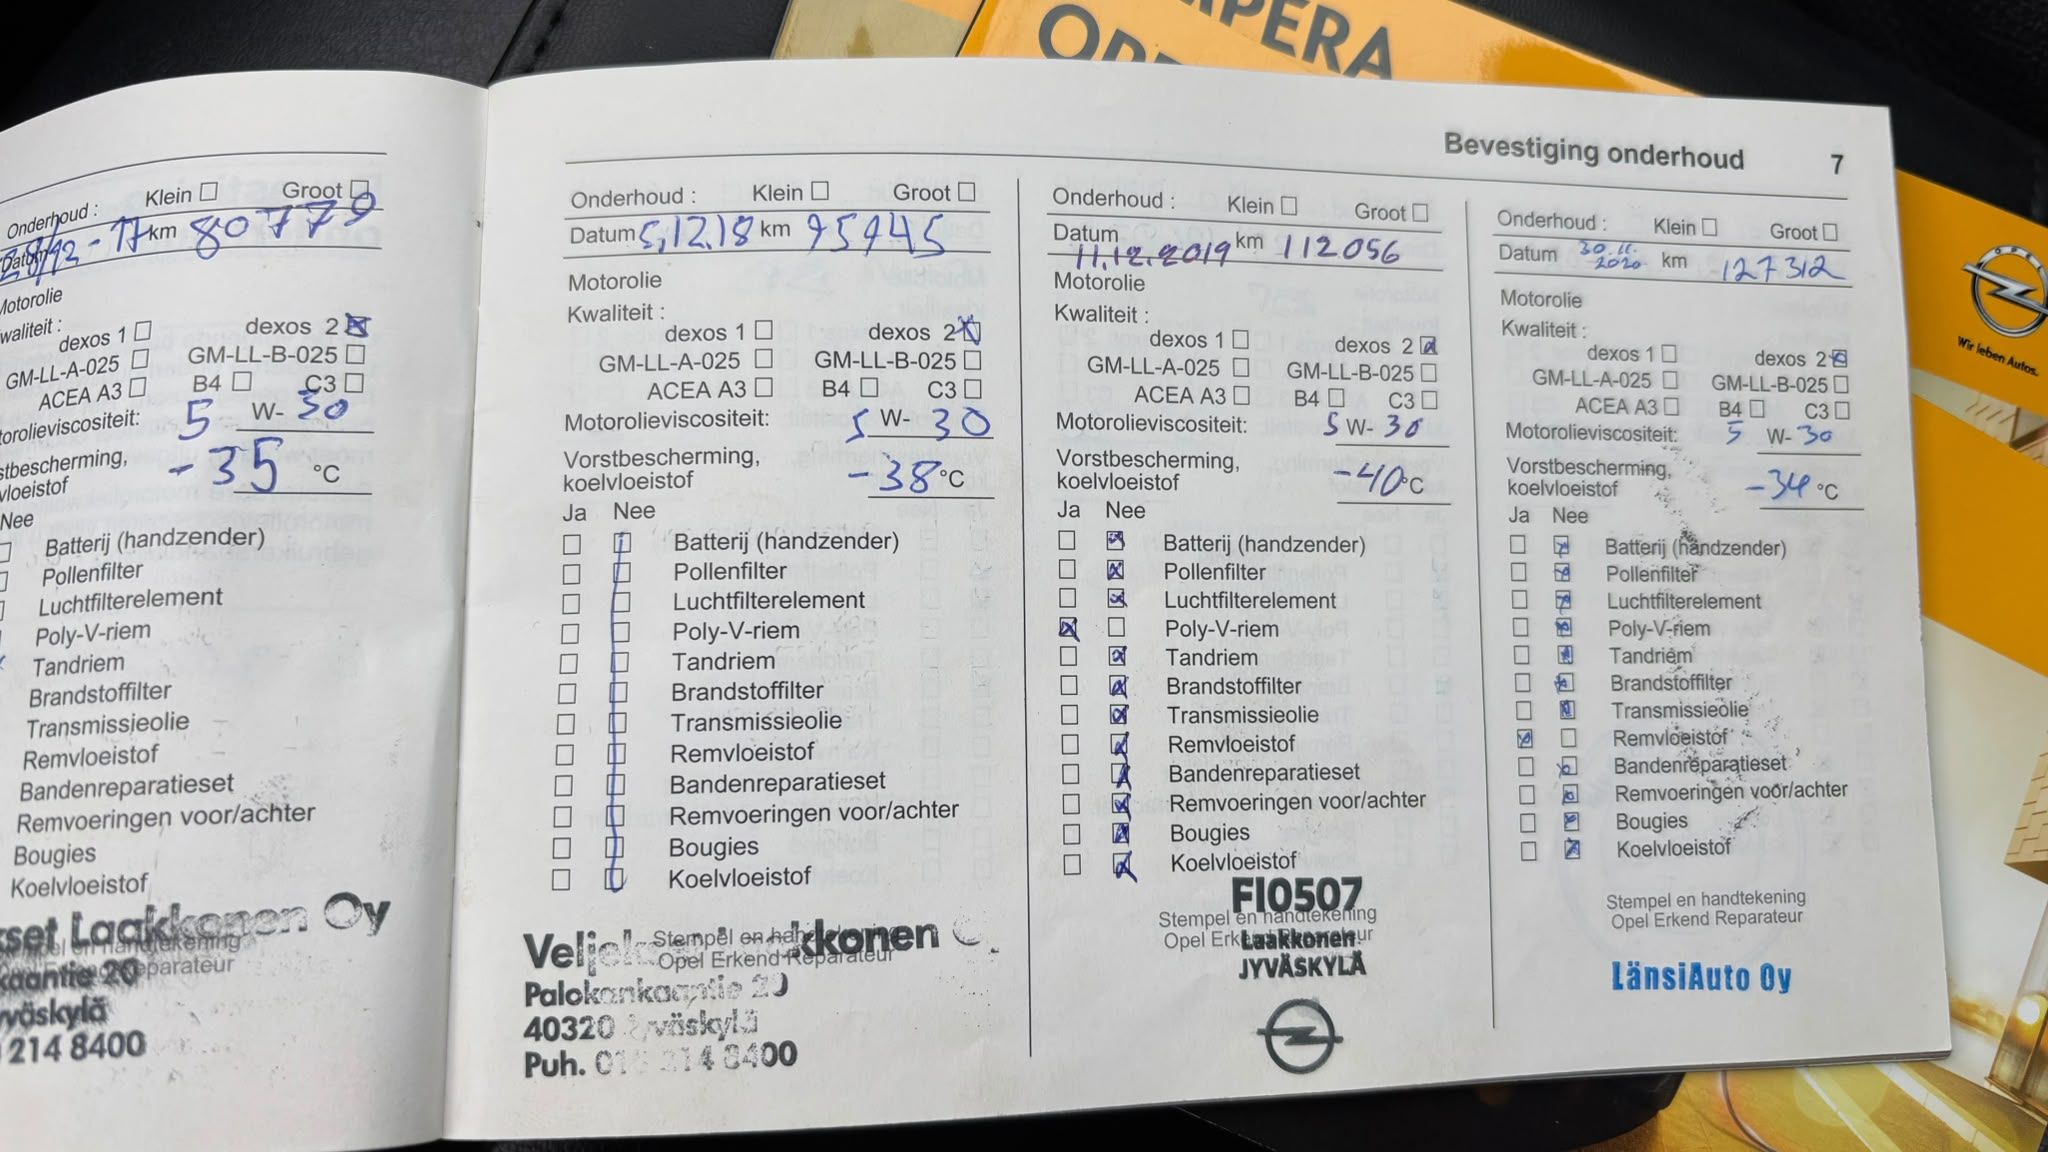 Onderhoud : Klein Groot
28/12-17 km 80779
Motorolie
dexos 1 dexos 2
GM-LL-A-025 GM-LL-B-025
ACEA A3 B4 C3
5 W- 30
-35 °C
Nee
Batterij (handzender)
Pollenfilter
Luchtfilterelement
Poly-V-riem
Tandriem
Brandstoffilter
Transmissieolie
Remvloeistof
Bandenreparatieset
Remvoeringen voor/achter
Bougies
Koelvloeistof
Laakkonen Oy
20
214 8400
Bevestiging onderhoud 7
Onderhoud : Klein Groot
Datum 5,12.18 km 95945
Motorolie
Kwaliteit :
dexos 1 dexos 2
GM-LL-A-025 GM-LL-B-025
ACEA A3 B4 C3
Motorolieviscositeit: 5 W- 30
Vorstbescherming,
koelvloeistof -38 °C
Ja Nee
Batterij (handzender)
Pollenfilter
Luchtfilterelement
Poly-V-riem
Tandriem
Brandstoffilter
Transmissieolie
Remvloeistof
Bandenreparatieset
Remvoeringen voor/achter
Bougies
Koelvloeistof
Stempel en handtekening
Opel Erkend Reparateur
Palokankaantie 20
40320 Jyväskylä
Puh. 214 8400
Onderhoud : Klein Groot
Datum 11.12.2019 km 112056
Motorolie
Kwaliteit :
dexos 1 dexos 2
GM-LL-A-025 GM-LL-B-025
ACEA A3 B4 C3
Motorolieviscositeit: 5 W- 30
Vorstbescherming,
koelvloeistof -40 °C
Ja Nee
Batterij (handzender)
Pollenfilter
Luchtfilterelement
Poly-V-riem
Tandriem
Brandstoffilter
Transmissieolie
Remvloeistof
Bandenreparatieset
Remvoeringen voor/achter
Bougies
Koelvloeistof
FI0507
Stempel en handtekening
Opel Erkend Reparateur
Laakkonen
JYVÄSKYLÄ
Onderhoud : Klein Groot
Datum 30.11.2020 km 127312
Motorolie
Kwaliteit :
dexos 1 dexos 2
GM-LL-A-025 GM-LL-B-025
ACEA A3 B4 C3
Motorolieviscositeit: 5 W- 30
Vorstbescherming,
koelvloeistof -34 °C
Ja Nee
Batterij (handzender)
Pollenfilter
Luchtfilterelement
Poly-V-riem
Tandriem
Brandstoffilter
Transmissieolie
Remvloeistof
Bandenreparatieset
Remvoeringen voor/achter
Bougies
Koelvloeistof
Stempel en handtekening
Opel Erkend Reparateur
LänsiAuto Oy
OPEL
Wir leben Autos.